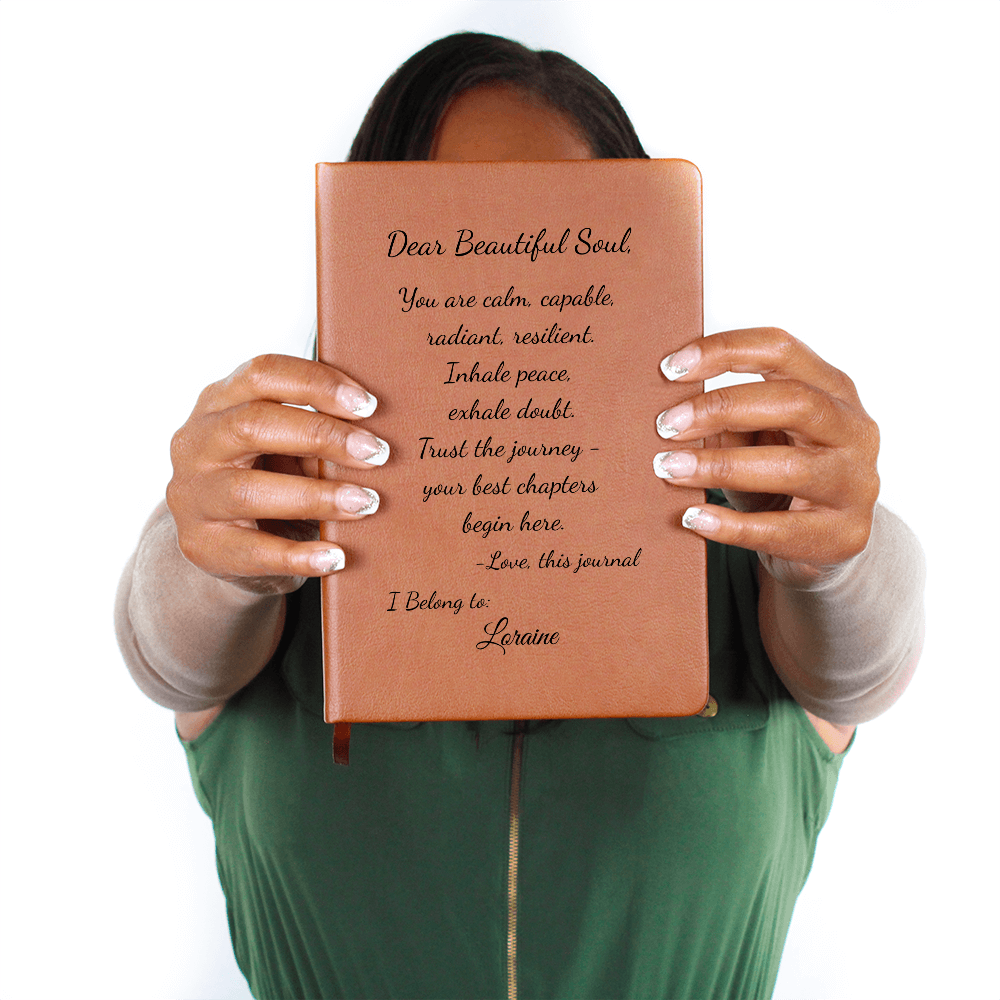 Dear Beautiful Soul,
You are calm, capable,
radiant, resilient.
Inhale peace,
exhale doubt.
Trust the journey -
your best chapters
begin here.
-Love, this journal
I Belong to:
Loraine